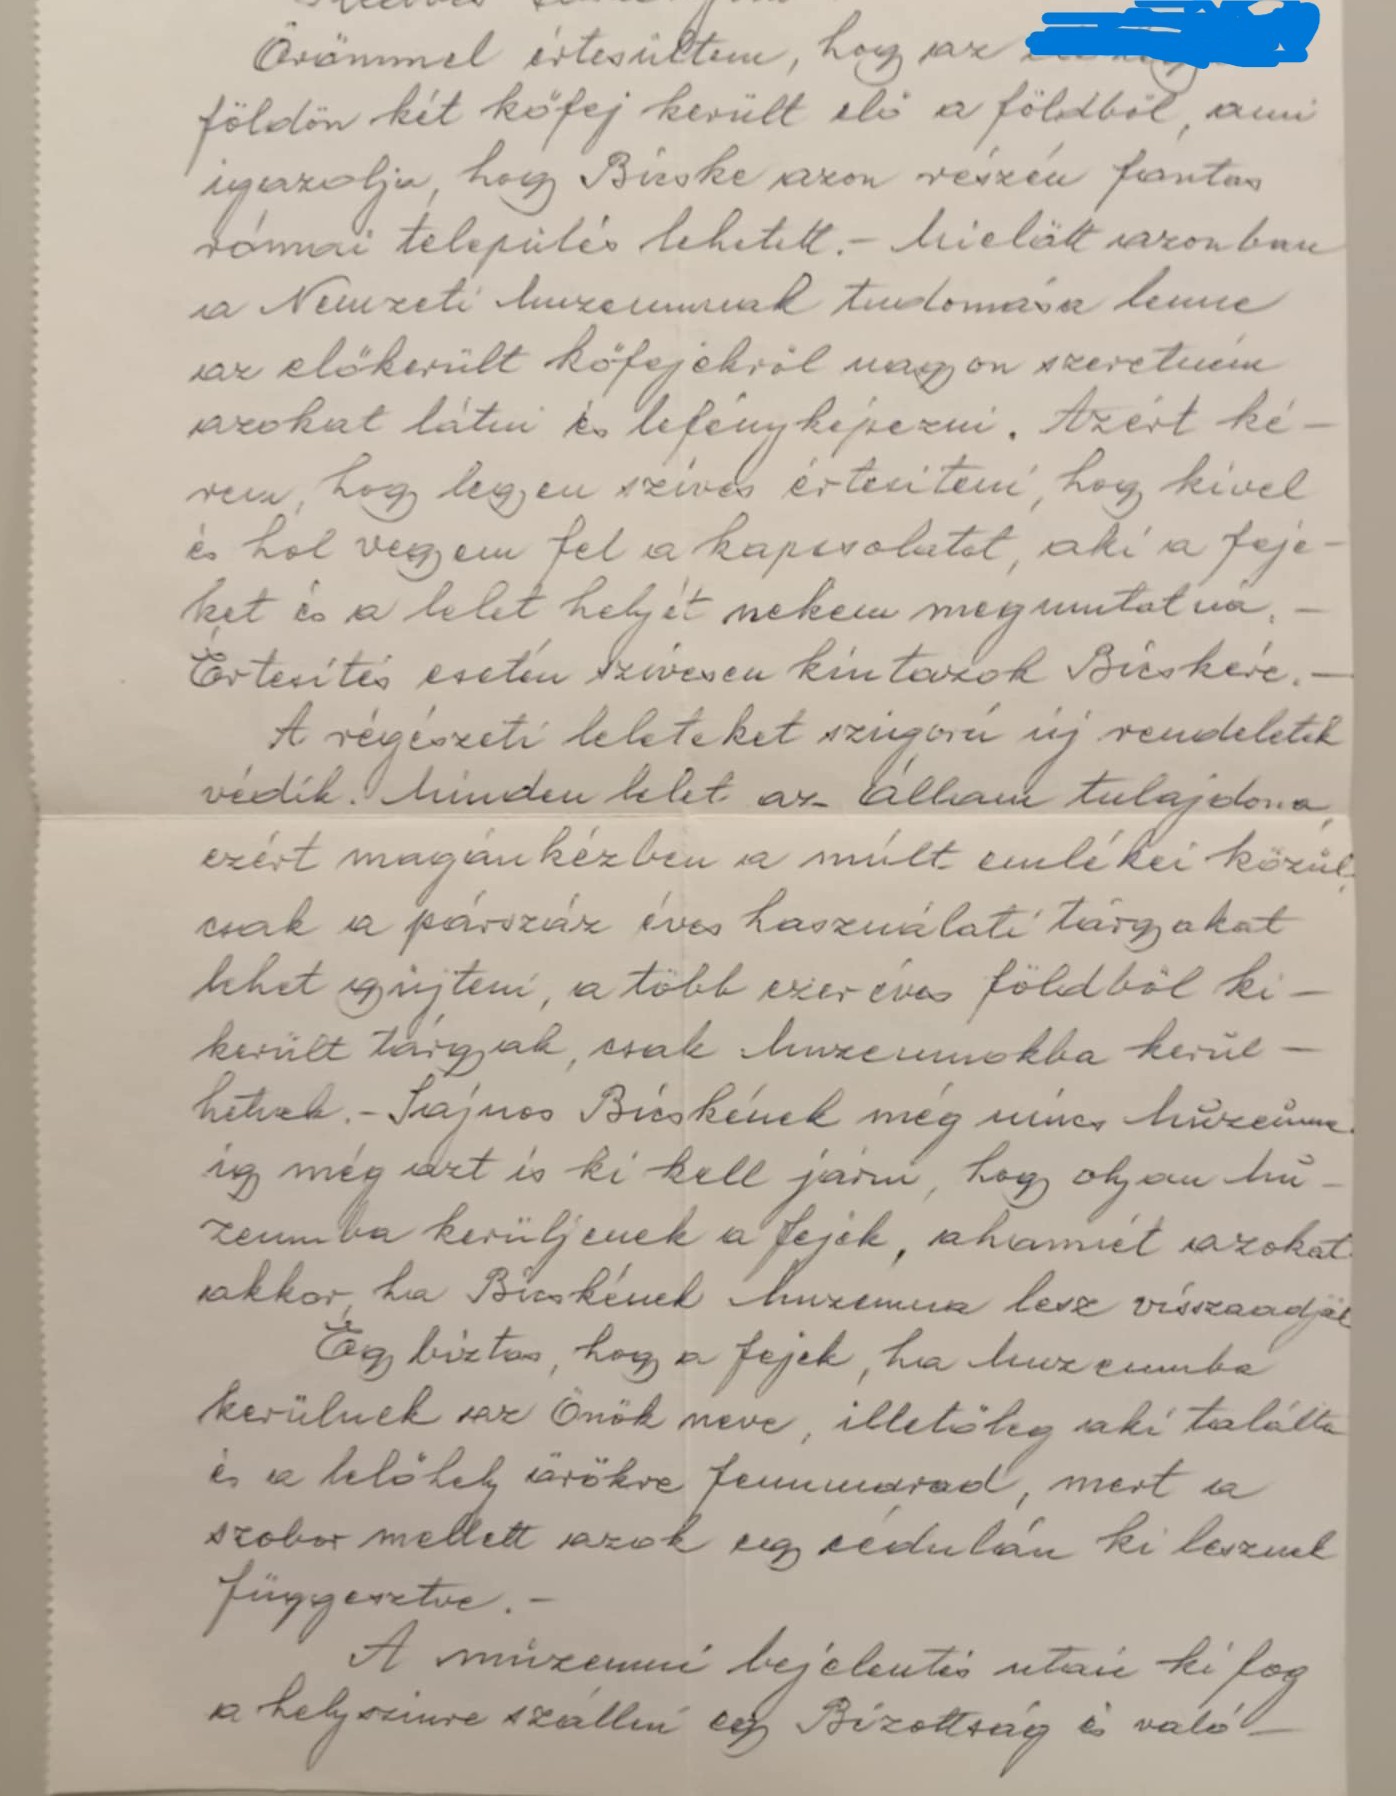 Örömmel értesültem, hogy az
földön két kőfej került elő a földből, ami
igazolja, hogy Bicske azon részén fontos
római település lehetett. – Mielőtt azonban
a Nemzeti Muzeumnak tudomása lenne
az előkerült kőfejekről nagyon szeretném
azokat látni és lefényképezni. Azért ké–
rem, hogy legyen szíves értesíteni, hogy kivel
és hol vegyem fel a kapcsolatot, aki a feje–
ket és a lelet helyét nekem megmutatná. –
Értesítés esetén szívesen kiutazok Bicskére. –
A régészeti leleteket szigorú új rendeletek
védik. Minden lelet az Állam tulajdona,
ezért magánkézben a múlt emlékei közül
csak a párszáz éves használati tárgyakat
lehet gyűjteni, a több ezer éves földből ki–
került tárgyak, csak Muzeumokba kerül–
hetnek. – Sajnos Bicskének még nincs Múzeuma
így még azt is ki kell járni, hogy olyan Mú–
zeumba kerüljenek a fejek, ahonnét azokat
akkor, ha Bicskének Muzeuma lesz visszaadják
Egy biztos, hogy a fejek, ha Muzeumba
kerülnek az Önök neve, illetőleg aki találta
és a lelőhely örökre fennmarad, mert a
szobor mellett azok egy cédulán ki lesznek
függesztve. –
A múzeumi bejelentés után ki fog
a helyszínre szállni egy Bizottság és való–